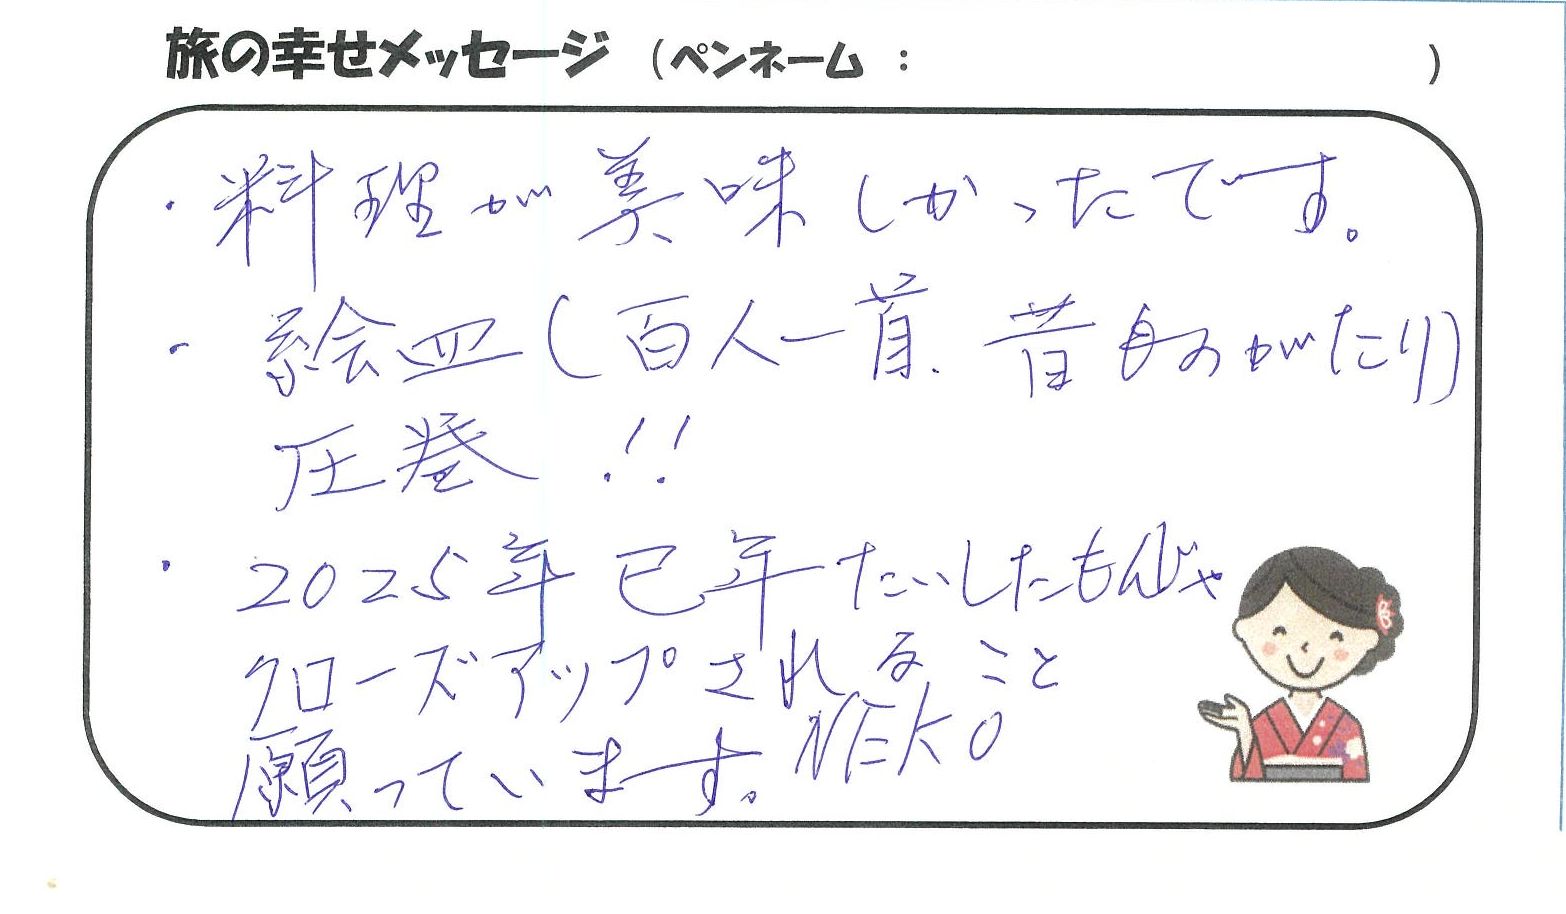 旅の幸せメッセージ (ペンネーム : )
・料理が美味しかったです。
・絵皿(百人一首、昔ものがたり)
圧巻!!
・2025年巳年たいしたもんじゃ
クローズアップされること
願っています。NEKO